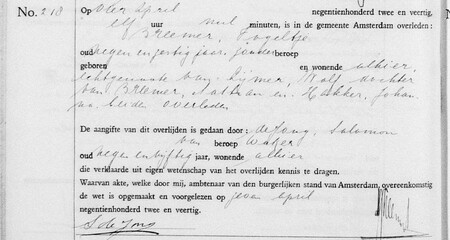 No. 218 Op vier April negentienhonderd twee en veertig,
elf uur nul minuten, is in de gemeente Amsterdam overleden:
Breemer, Vogeltje
oud negen en zestig jaar, zonder beroep
geboren en wonende alhier,
echtgenoote van Limer, Wolf, dochter
van Breemer, Nathan en Hakker, Johan
na, beiden overleden
De aangifte van dit overlijden is gedaan door: de Jong, Salomon
van beroep waker
oud negen en vijftig jaar, wonende alhier
die verklaarde uit eigen wetenschap van het overlijden kennis te dragen.
Waarvan akte, welke door mij, ambtenaar van den burgerlijken stand van Amsterdam, overeenkomstig
de wet is opgemaakt en voorgelezen op zeven April
negentienhonderd twee en veertig.
S de Jong